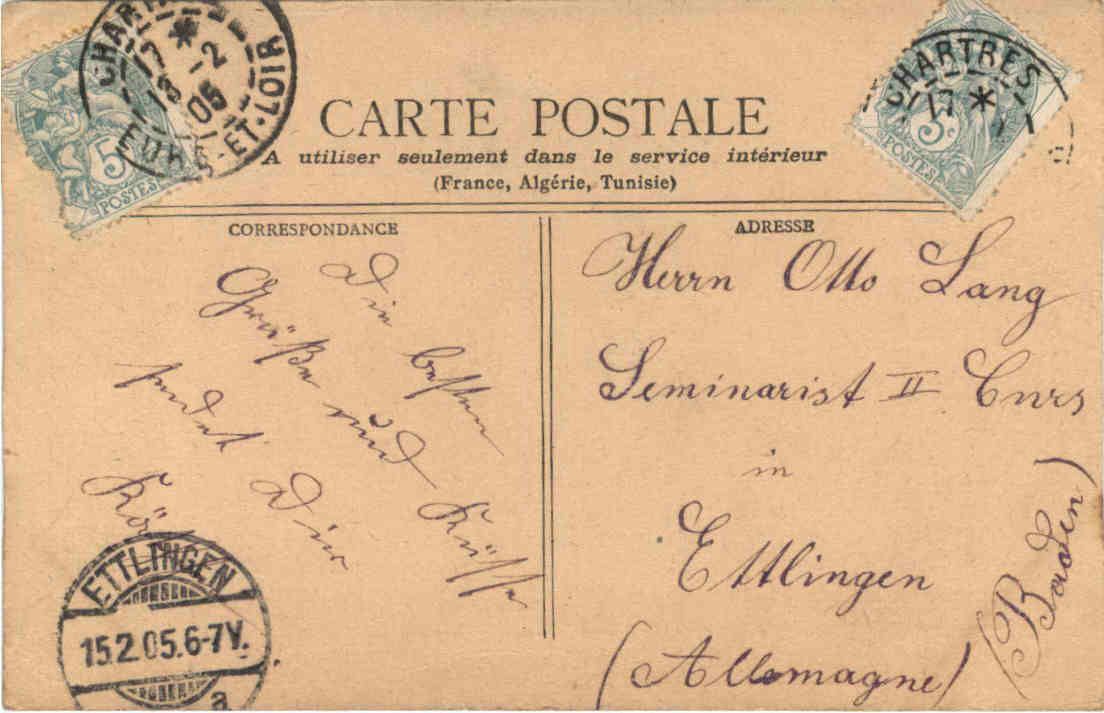 CHARTRES
17 * 13 -2 05
EURE-ET-LOIR
5
POSTES
CHARTRES
17 *
5
POSTES
CARTE POSTALE
A utiliser seulement dans le service intérieur
(France, Algérie, Tunisie)
CORRESPONDANCE
Die besten
Grüße und Küsse
sendet Dir
ADRESSE
Herrn Otto Lang
Seminarist II Curs
in
Ettlingen
(Allemagne)
(Baden)
ETTLINGEN
15.2.05.6-7V.
a